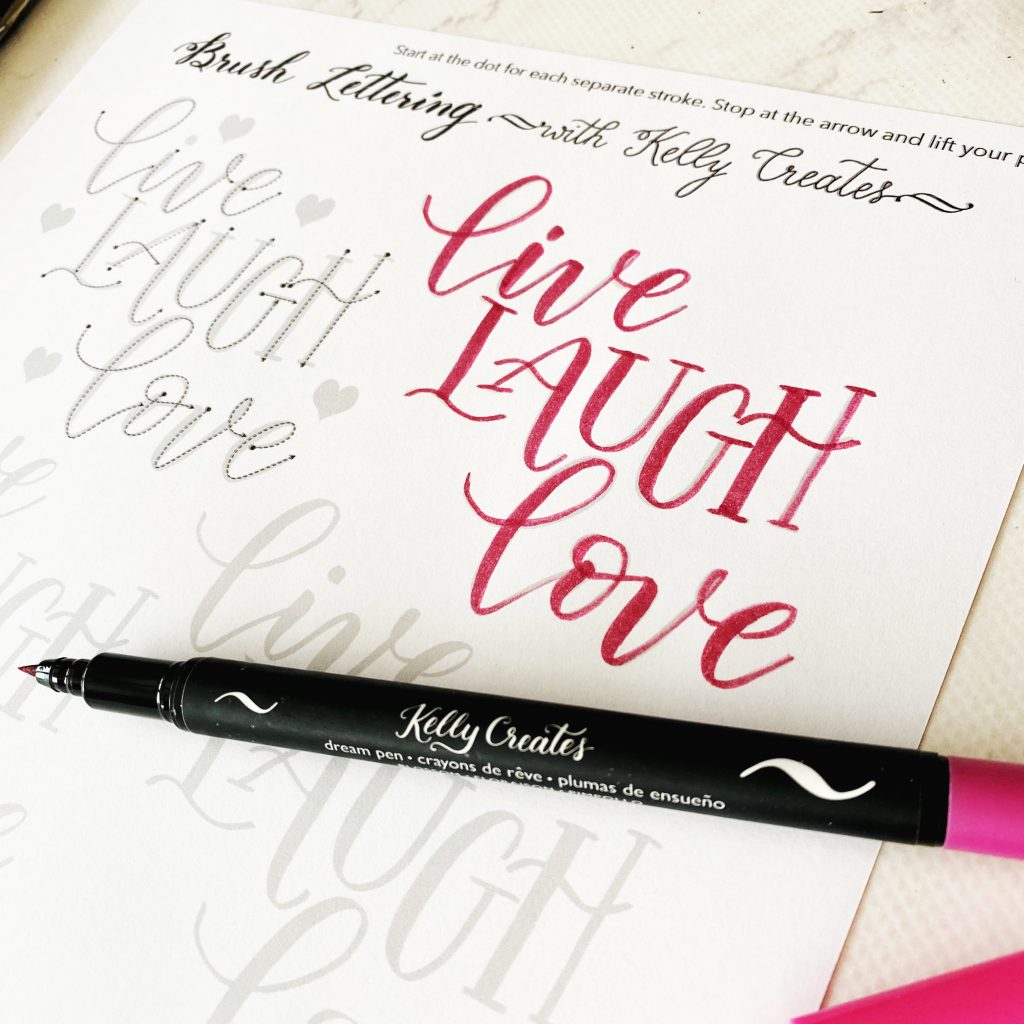 Start at the dot for each separate stroke. Stop at the arrow and lift your
Brush Lettering with Kelly Creates
live
LAUGH
love
live
LAUGH
love
live
LAUGH
Kelly Creates
dream pen • crayons de rêve • plumas de ensueño